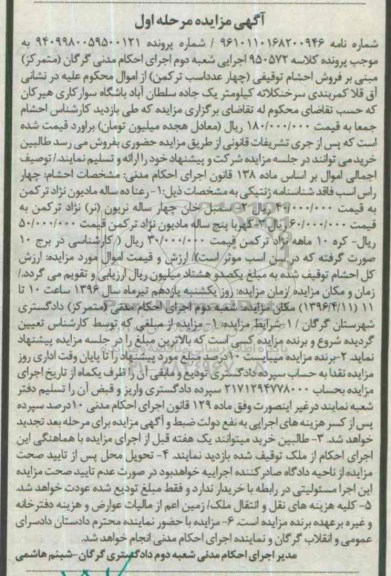 آگهی مزایده مرحله اول
شماره نامه ۹۶۱۰۱۱۰۱۶۸۲۰۰۹۴۶ / شماره پرونده ۹۴۰۹۹۸۰۰۵۹۵۰۰۱۲۱ به
موجب پرونده کلاسه ۹۵۰۵۷۲ اجرایی شعبه دوم اجرای احکام مدنی گرگان (متمرکز)
مبنی بر فروش احشام توقیفی (چهار عدد اسب ترکمن) از اموال محکوم علیه در نشانی
آق قلا کمربندی سرخنکلاته کیلومتر یک جاده سلطان آباد باشگاه سوارکاری هیرکان
که حسب تقاضای محکوم له تقاضای برگزاری مزایده که طی بازدید کارشناس احشام
جمعا به قیمت ۱۸۰/۰۰۰/۰۰۰ ریال (معادل هجده میلیون تومان) براورد قیمت شده
است که پس از جری تشریفات قانونی از طریق مزایده حضوری بفروش می رسد طالبین
خرید می توانند در جلسه مزایده شرکت و پیشنهاد خود را ارائه و تسلیم نمایند/ توصیف
اجمالی اموال بر اساس ماده ۱۳۸ قانون اجرای احکام مدنی: مشخصات احشام: چهار
راس اسب فاقد شناسنامه ژنتیکی به مشخصات ذیل: ۱- رعنا ده ساله مادیون نژاد ترکمن
به قیمت ۴۰/۰۰۰/۰۰۰ ریال ۲- خان چهار ساله نریون (نر) نژاد ترکمن به
قیمت ۶۰/۰۰۰/۰۰۰ ریال ۳- کهربا پنج ساله مادیون نژاد ترکمن قیمت ۵۰/۰۰۰/۰۰۰
ریال- کره ۱۰ ماهه نژاد ترکمن قیمت ۳۰/۰۰۰/۰۰۰ ریال ( کارشناسی در برج ۱۰
صورت گرفته که در سن اسب موثر است)/ ارزش و قیمت اموال مورد مزایده: ارزش
کل احشام توقیف شده به مبلغ یکصدو هشتاد میلیون ریال ارزیابی و تقویم می گردد./
زمان و مکان مزایده /زمان مزایده: روز یکشنبه یازدهم تیرماه سال ۱۳۹۶ ساعت ۱۰ تا
۱۱ (۱۳۹۶/۴/۱۱) مکان مزایده: شعبه دوم اجرای احکام مدنی (متمرکز) دادگستری
شهرستان گرگان / ۱-شرایط مزایده: ۱- مزایده از مبلغی که توسط کارشناس تعیین
گردیده شروع و برنده مزایده کسی است که بالاترین مبلغ را در جلسه مزایده پیشنهاد
نماید ۲-برنده مزایده میبایست ۱۰درصد مبلغ مورد پیشنهاد را تا پایان وقت اداری روز
مزایده نقدا به حساب سپرده دادگستری تودیع و مابقی آن را ظرف یکماه از تاریخ اجرای
مزایده بحساب ۲۱۷۱۲۹۴۷۷۸۰۰۰ سپرده دادگستری واریز و قبض آن را تسلیم دفتر
شعبه نمایند درغیر اینصورت وفق ماده ۱۲۹ قانون اجرای احکام مدنی ۱۰درصد سپرده
پس از کسر هزینه های اجرایی به نفع دولت ضبط و آگهی مزایده برای مرحله بعد تجدید
خواهد شد. ۳- طالبین خرید میتوانند یک هفته قبل از اجرای مزایده با هماهنگی این
اجرای احکام از ملک توقیف شده بازدید نمایند. ۴- تحویل محل پس از تایید صحت
مزایده از ناحیه دادگاه صادر کننده اجراییه خواهدبود در صورت عدم تایید صحت مزایده
این اجرا مسئولیتی در رابطه با خریدار ندارد و فقط مبلغ تودیع شده عودت خواهد شد
۵- کلیه هزینه های نقل و انتقال ملک/ زمین اعم از مالیات عوارض و هزینه دفترخانه
و غیره برعهده برنده مزایده است. ۶- مزایده با حضور نماینده محترم دادستان دادسرای
عمومی و انقلاب گرگان و نماینده اجرای احکام مدنی انجام خواهد شد.
مدیر اجرای احکام مدنی شعبه دوم دادگستری گرگان -شبنم هاشمی